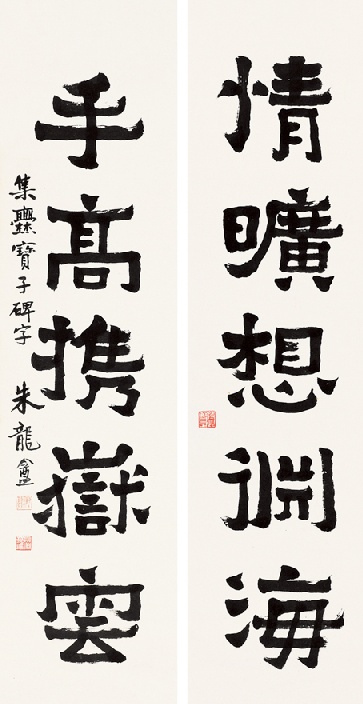 情曠想淵海
手高携嶽雲
集爨寶子碑字 朱龍盦